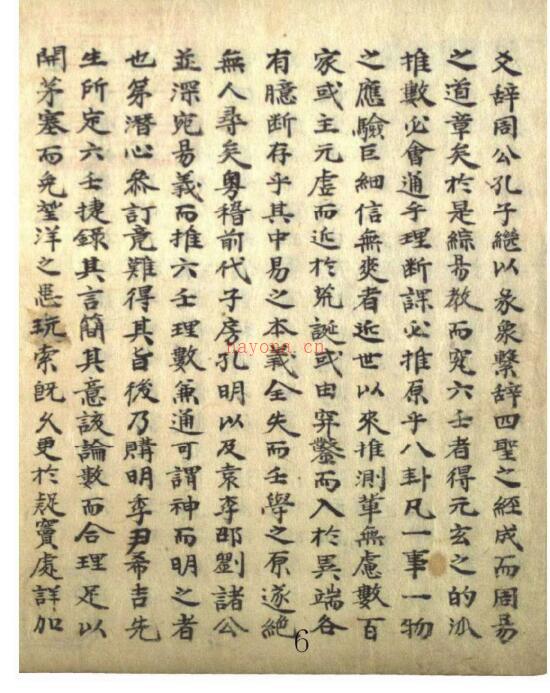 爻辭周公孔子繼以彖象繫辭四聖之經成而周易
之道章矣於是綜易教而究六壬者得元玄之的派
推數必會通乎理斷課必推原乎八卦凡一事一物
之應驗巨細信無爽者近世以來推測軰無慮數百
家或主元虛而近於荒誕或由穿鑿而入於異端各
有臆斷存乎其中易之本義全失而壬學之原遂絶
無人尋矣粤稽前代子房孔明以及袁李邵劉諸公
並深宛易義而推六壬理數兼通可謂神而明之者
也第潛心叅訂竟難得其旨後乃購明季尹希吉先
生所定六壬捷録其言簡其意該論數而合理足以
開茅塞而免望洋之愚玩索旣久更於疑竇處詳加
nayona.cn
6